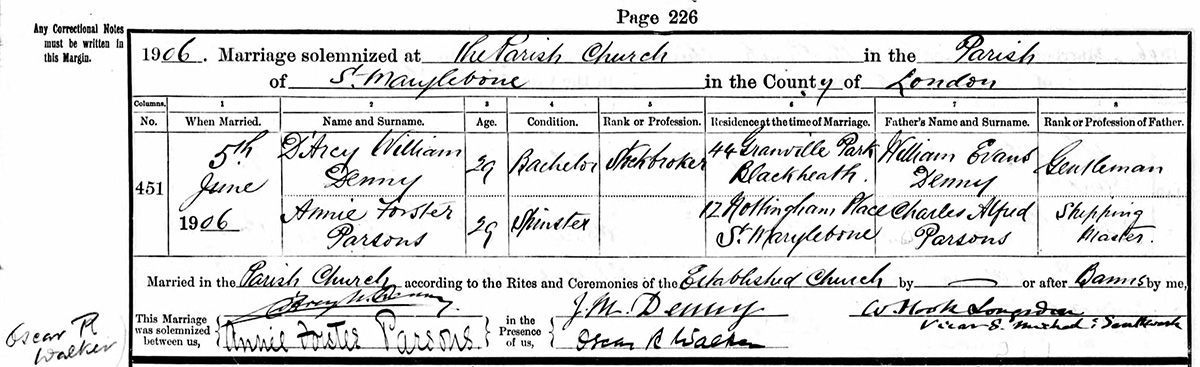 Page 226
Any Correctional Notes
must be written in
this Margin.
1906. Marriage solemnized at the Parish Church in the Parish
of St. Marylebone in the County of London
Columns. 1 2 3 4 5 6 7 8
No. When Married. Name and Surname. Age. Condition. Rank or Profession. Residence at the time of Marriage. Father's Name and Surname. Rank or Profession of Father.
451
5th
June
1906
D'Arcy William
Denny
29
Bachelor
Stockbroker
44 Granville Park
Blackheath.
William Evans
Denny
Gentleman
Annie Forster
Parsons
29
Spinster
17 Nottingham Place
St. Marylebone
Charles Alfred
Parsons
Shipping
Master.
Married in the Parish Church according to the Rites and Ceremonies of the Established Church by — or after Banns by me,
This Marriage
was solemnized
between us,
D'Arcy W. Denny
Annie Forster Parsons
in the
Presence
of us,
J. M. Denny
Oscar R Walker
W. Hook Longsdon
Vicar S. Michael's Southwark
Oscar R
Walker